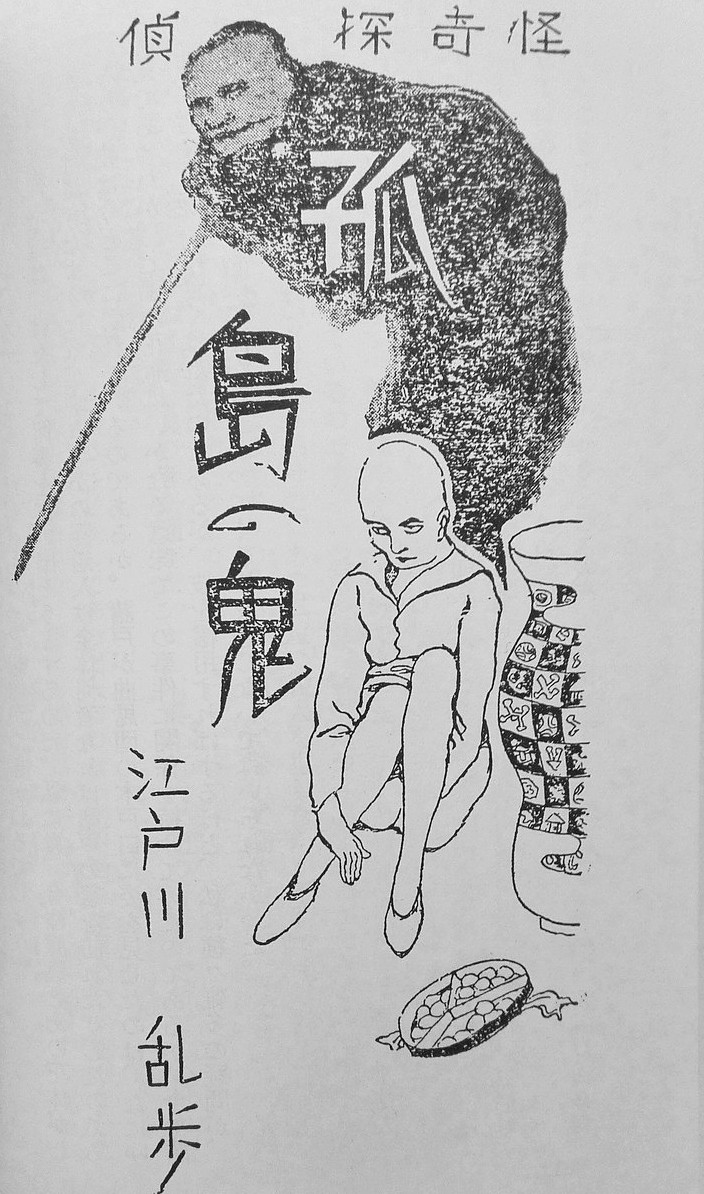 怪奇探偵
孤島の鬼
江戸川 乱歩